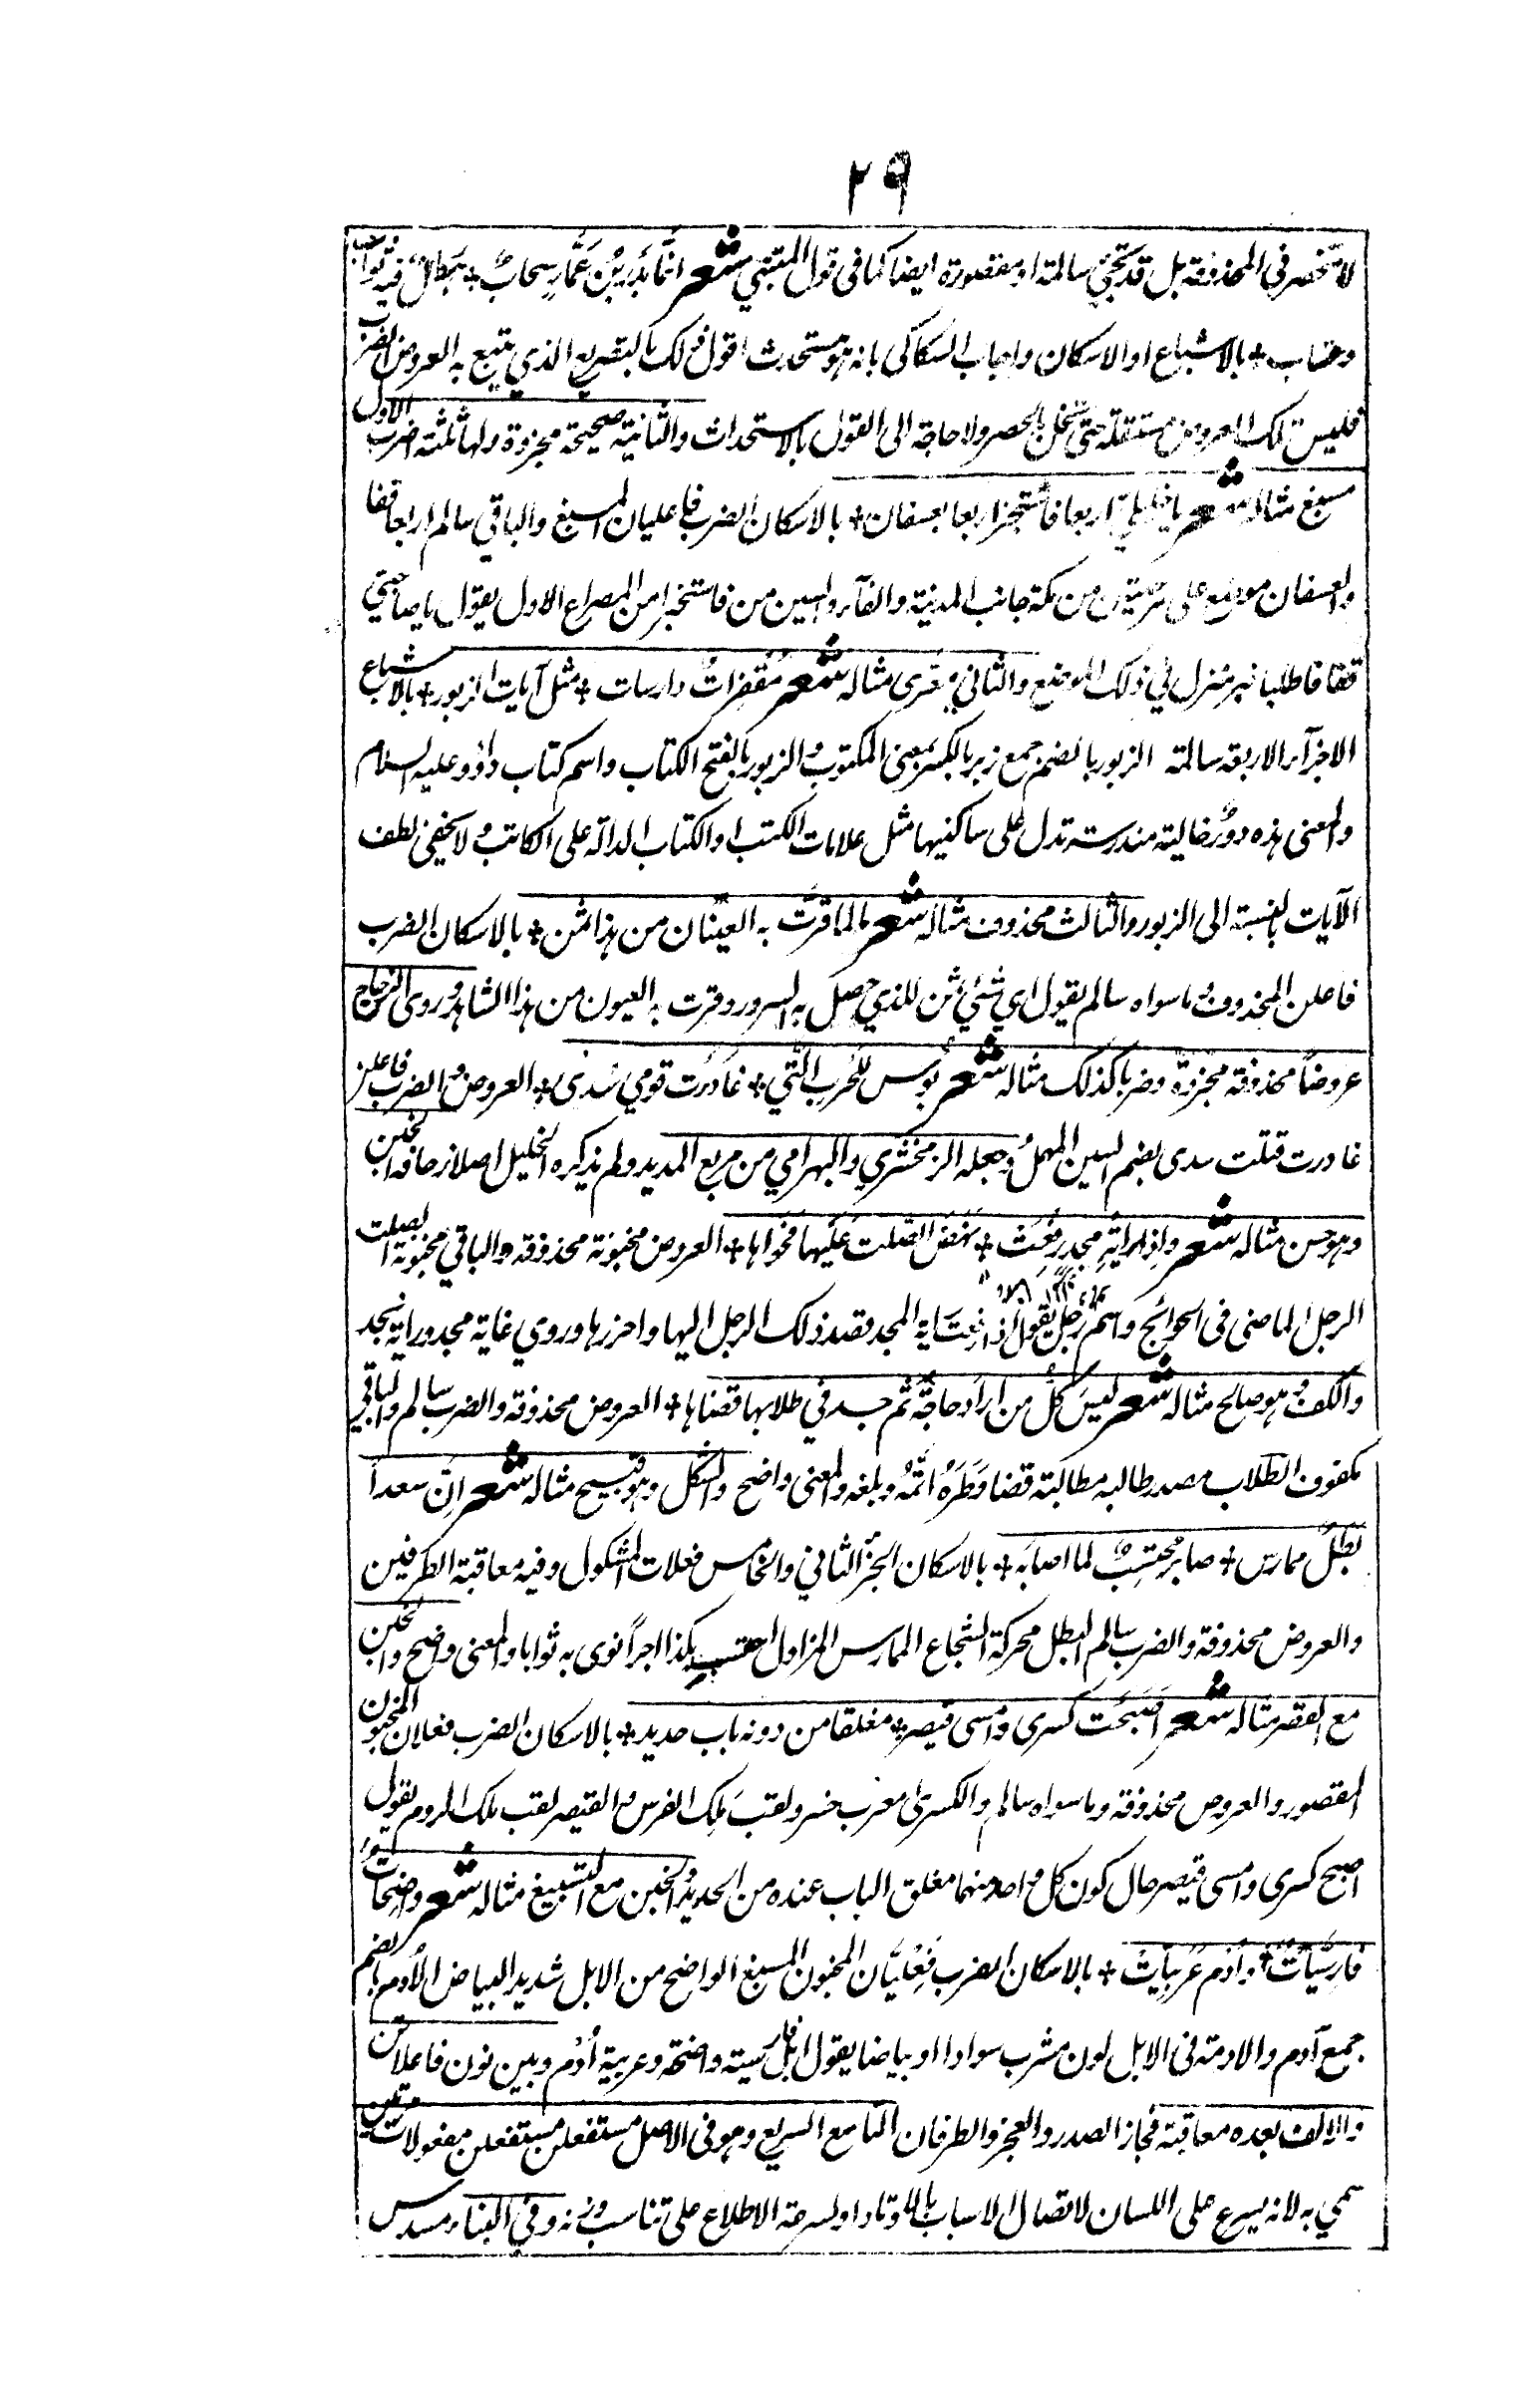 ٢٩
لا تنحصر في المحذوفة بل قد تجئ سالمة او مقصورة ايضا كما في قول المتنبي شعر انما بدر بن عمار سحاب + هطل فيه ثواب
وعقاب + بالاشباع او الاسكان واجاب السكاكي بانه هو مستحدث اقول ذلك بالتصريع الذي يتبع به العروض الضرب
فليست تلك العروض مستقلة حتى تخل بالحصر ولا حاجة الى القول بالاستحداث والثانية صحيحة مجزوة ولها ثلثة اضرب الاول
مسبغ مثاله شعر يا خليلي اربعا فاستخبرا ربعا بعسفان + بالاسكان الضرب فاعليان المسبغ والباقي سالم اربعا قفا
والعسفان موضع على مرحلتين من مكة جانب المدينة والفاء والسين من فاستخبرا من المصراع الاول يقول يا صاحبي
قفا فاطلبا خبر منزل في ذلك الموضع والثاني معرى مثاله شعر مقفرات دارسات + مثل آيات الزبور + بالاشباع
الاجزاء الاربعة سالمة الزبور بالضم جمع زبر بالكسر بمعنى المكتوب والزبور بالفتح الكتاب واسم كتاب داؤد عليه السلام
والمعنى هذه دور خالية مندرسة تدل على ساكنيها مثل علامات الكتب او الكتاب الدالة على الكاتب ولا يخفى لطف
الآيات بالنسبة الى الزبور والثالث محذوف مثاله شعر ما لما قرت به العينان من هذا ثمن + بالاسكان الضرب
فاعلن المحذوف وما سواه سالم يقول اي شئ ثمن للذي حصل به السرور وقرت به العيون من هذا الشاهد وروى الزجاج
عروضا محذوفة مجزوة وضربا كذلك مثاله شعر بؤس للحرب التي + غادرت قومي سدى + العروض والضرب فاعلن
غادرت قتلت سدى بضم السين المهمل وجعله الزمخشري والبهرامي من مربع المديد ولم يذكره الخليل اصلا زحافه الخبن
وهو حسن مثاله شعر واذا راية مجد رفعت + نهض الصلت عليها فحواها + العروض مخبونة محذوفة والباقي مخبونة الصلت
الرجل الماضي في الحوائج واسم رجل يقول اذا رفعت راية المجد قصد ذلك الرجل اليها واحرزها وروي غاية مجد وراية نجد
والكف وهو صالح مثاله شعر ليس كل من اراد حاجة ثم جد في طلابها قضاها + العروض محذوفة والضرب سالم والباقي
مكفوف الطلاب مصدر طالبه مطالبة قضا وطره اتمه وبلغه والمعنى واضح والشكل وهو قبيح مثاله شعر ان سعدا
بطل ممارس + صابر محتسب لما اصابه + بالاسكان الجزء الثاني والخامس فعلات المشكول وفيه معاقبة الطرفين
والعروض محذوفة والضرب سالم البطل محركة الشجاع الممارس المزاول احتسب بكذا اجرا نوى به ثوابا والمعنى واضح والخبن
مع القصر مثاله شعر اصبحت كسرى وامسى قيصر + مغلقا من دونه باب حديد + بالاسكان الضرب فعلان المخبون
المقصور والعروض محذوفة وما سواه سالم والكسرى معرب خسرو لقب ملك الفرس والقيصر لقب ملك الروم يقول
اصبح كسرى وامسى قيصر حال كون كل واحد منهما مغلق الباب عنده من الحديد والخبن مع التسبيغ مثاله شعر واضحات
فارسيات + وادم عربيات + بالاسكان الضرب فعليان المخبون المسبغ الواضح من الابل شديد البياض الادم بالضم
جمع آدم والادمة في الابل لون مشرب سوادا او بياضا يقول ابل فارسية واضحة وعربية ادم وبين نون فاعلاتن
والالف بعده معاقبة فجاز الصدر والعجز والطرفان التاسع السريع وهو في الاصل مستفعلن مستفعلن مفعولات مرتين
سمي به لانه يسرع على اللسان لاتصال الاسباب بالاوتاد او لسرعة الاطلاع على تناسب وزنه وفي البناء مسدس